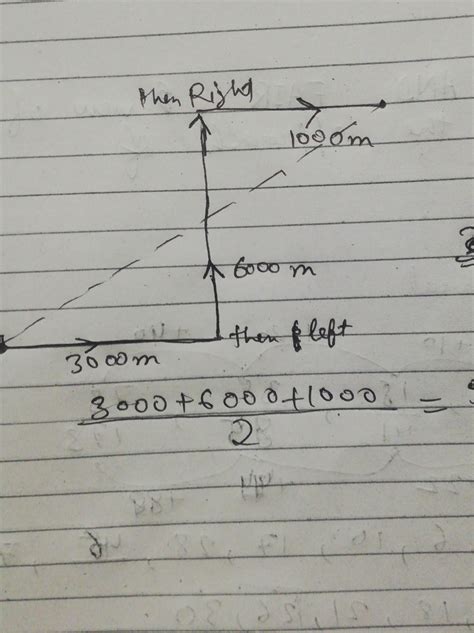 then Right
1000m
6000 m
then left
3000m
3000+6000+1000
2
=